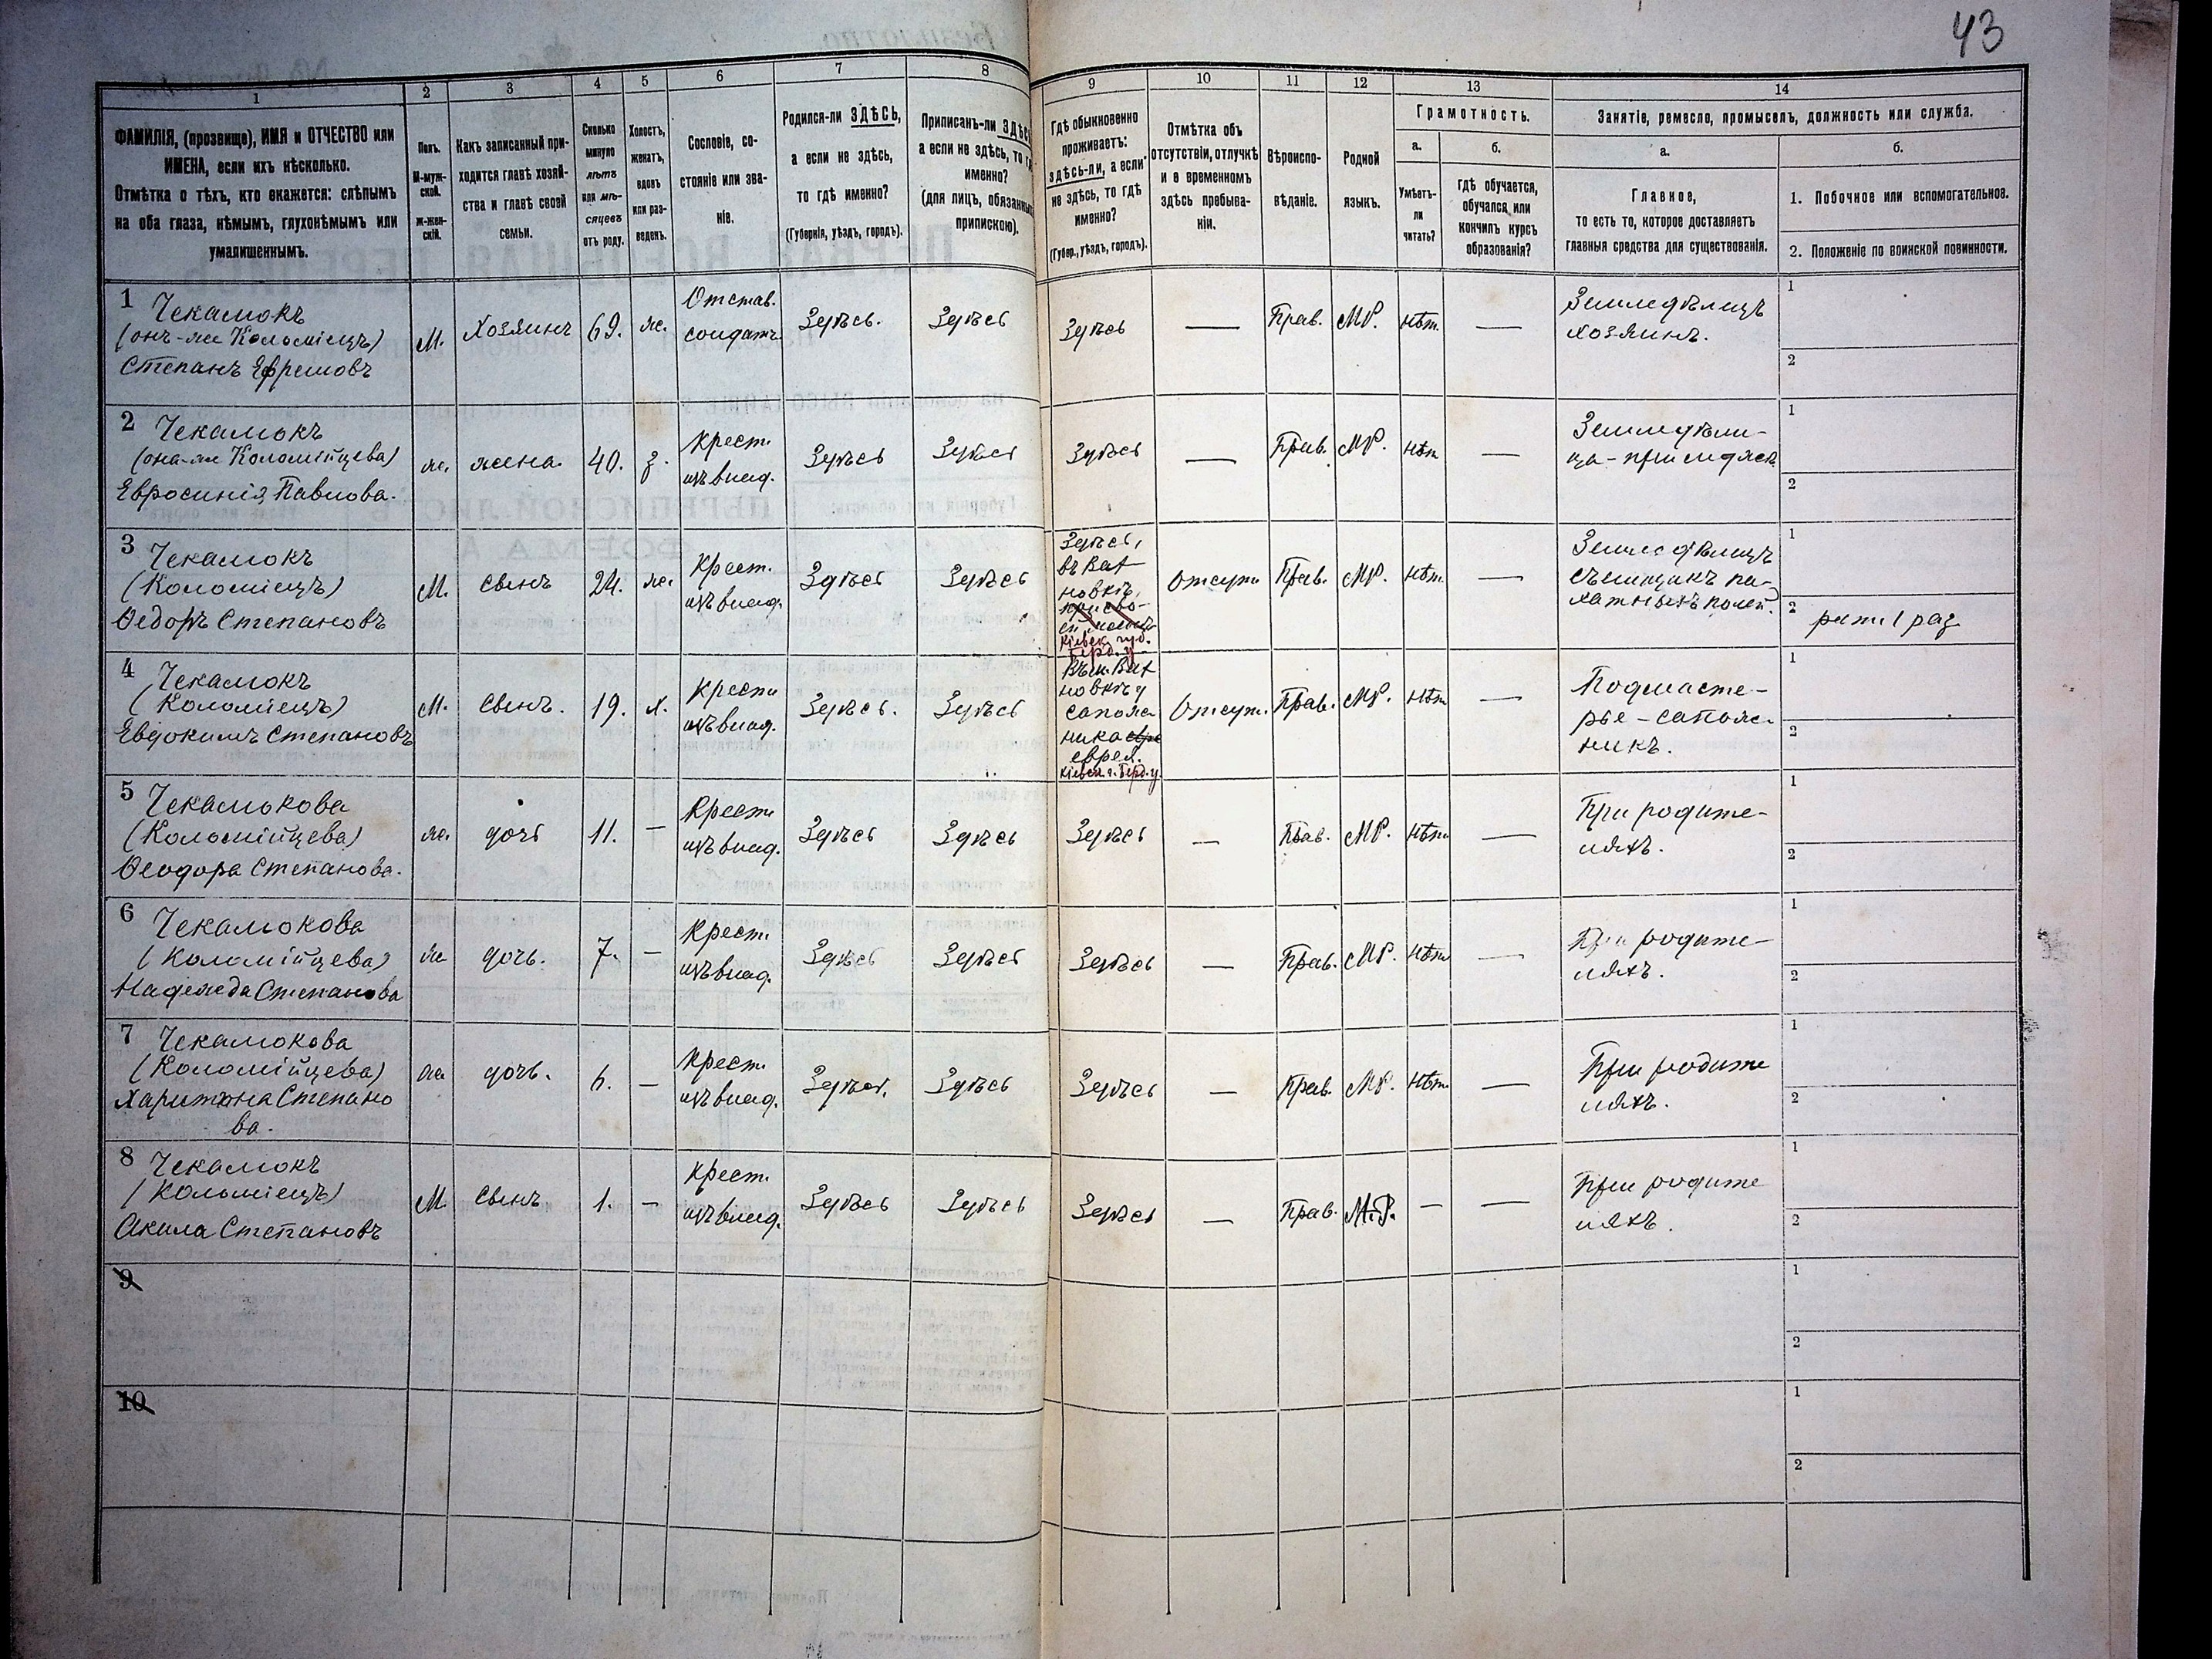 43
1 2 3 4 5 6 7 8 9 10 11 12 13 14
ФАМИЛІЯ, (прозвище), ИМЯ и ОТЧЕСТВО или
ИМЕНА, если ихъ нѣсколько.
Отмѣтка о тѣхъ, кто окажется: слѣпымъ
на оба глаза, нѣмымъ, глухонѣмымъ или
умалишеннымъ.
Полъ.
М-муж-
ской.
ж-жен-
скій.
Какъ записанный при-
ходится главѣ хозяй-
ства и главѣ своей
семьи.
Сколько
минуло
лѣтъ
или мѣ-
сяцевъ
отъ роду.
Холостъ,
женатъ,
вдовъ
или раз-
веденъ.
Сословіе, со-
стояніе или зва-
ніе.
Родился-ли ЗДѢСЬ,
а если не здѣсь,
то гдѣ именно?
(Губернія, уѣздъ, городъ).
Приписанъ-ли ЗДѢСЬ
а если не здѣсь, то гдѣ
именно?
(для лицъ, обязанныхъ
припискою).
Гдѣ обыкновенно
проживаетъ:
здѣсь-ли, а если
не здѣсь, то гдѣ
именно?
(Губер., уѣздъ, городъ).
Отмѣтка объ
отсутствіи, отлучкѣ
и о временномъ
здѣсь пребыва-
ніи.
Вѣроиспо-
вѣданіе.
Родной
языкъ.
Грамотность.
а.
Умѣетъ-
ли
читать?
б.
гдѣ обучается,
обучался или
кончилъ курсъ
образованія?
Занятіе, ремесло, промыселъ, должность или служба.
а.
Главное,
то есть то, которое доставляетъ
главныя средства для существованія.
б.
1. Побочное или вспомогательное.
2. Положеніе по воинской повинности.
1 Чекамокъ
(онъ-же Коломіецъ)
Степанъ Ефремовъ
М.
Хозяинъ
69.
ж.
Отстав.
солдатъ.
Здѣсь.
Здѣсь
Здѣсь
—
Прав.
МР.
нѣт.
—
Земледѣлецъ
хозяинъ.
1
2
2 Чекамокъ
(она-же Коломійцева)
Евросинія Павлова.
ж.
жена.
40.
з.
Крест.
изъ влад.
Здѣсь
Здѣсь
Здѣсь
—
Прав.
МР.
нѣт
—
Земледѣли-
ца - при мужѣ
1
2
3 Чекамокъ
(Коломіецъ)
Ѳедоръ Степановъ
М.
сынъ
24.
ж.
Крест.
изъ влад.
Здѣсь
Здѣсь
Здѣсь,
въ Ват
новкѣ,
Кіевск. губ.
Берд. у.
Отсут.
Прав.
МР.
нѣт.
—
Земледѣлецъ
съемщикъ па-
хатныхъ полей.
1
2 рат. 1 раз
4 Чекамокъ
(Коломіецъ)
Евдокимъ Степановъ
М.
сынъ.
19.
х.
Крест
изъ влад.
Здѣсь.
Здѣсь
Въ м. Ват
новкѣ у
сапож
ника
еврея.
Кіевск. г. Берд. у.
Отсут.
Прав.
МР.
нѣт
—
Подмасте-
рье - сапож
никъ.
1
2
5 Чекамокова
(Коломійцева)
Ѳеодора Степанова.
ж.
дочь
11.
—
Крест
изъ влад.
Здѣсь
Здѣсь
Здѣсь
—
Прав.
МР.
нѣт.
—
При родите-
ляхъ.
1
2
6 Чекамокова
(Коломійцева)
Надежда Степанова
ж
дочь.
7.
—
Крест.
изъ влад.
Здѣсь
Здѣсь
Здѣсь
—
Прав.
МР.
нѣт
—
При родите-
ляхъ.
1
2
7 Чекамокова
(Коломійцева)
Харитона Степано
ва.
ж
дочь.
6.
—
Крест.
изъ влад.
Здѣсь.
Здѣсь
Здѣсь
—
Прав.
МР.
нѣт.
—
При родите
ляхъ.
1
2
8 Чекамокъ
(Коломіецъ)
Акила Степановъ
М.
сынъ
1.
—
Крест.
изъ влад.
Здѣсь
Здѣсь
Здѣсь
—
Прав.
М.Р.
—
—
При родите
ляхъ.
1
2
9
1
2
10
1
2